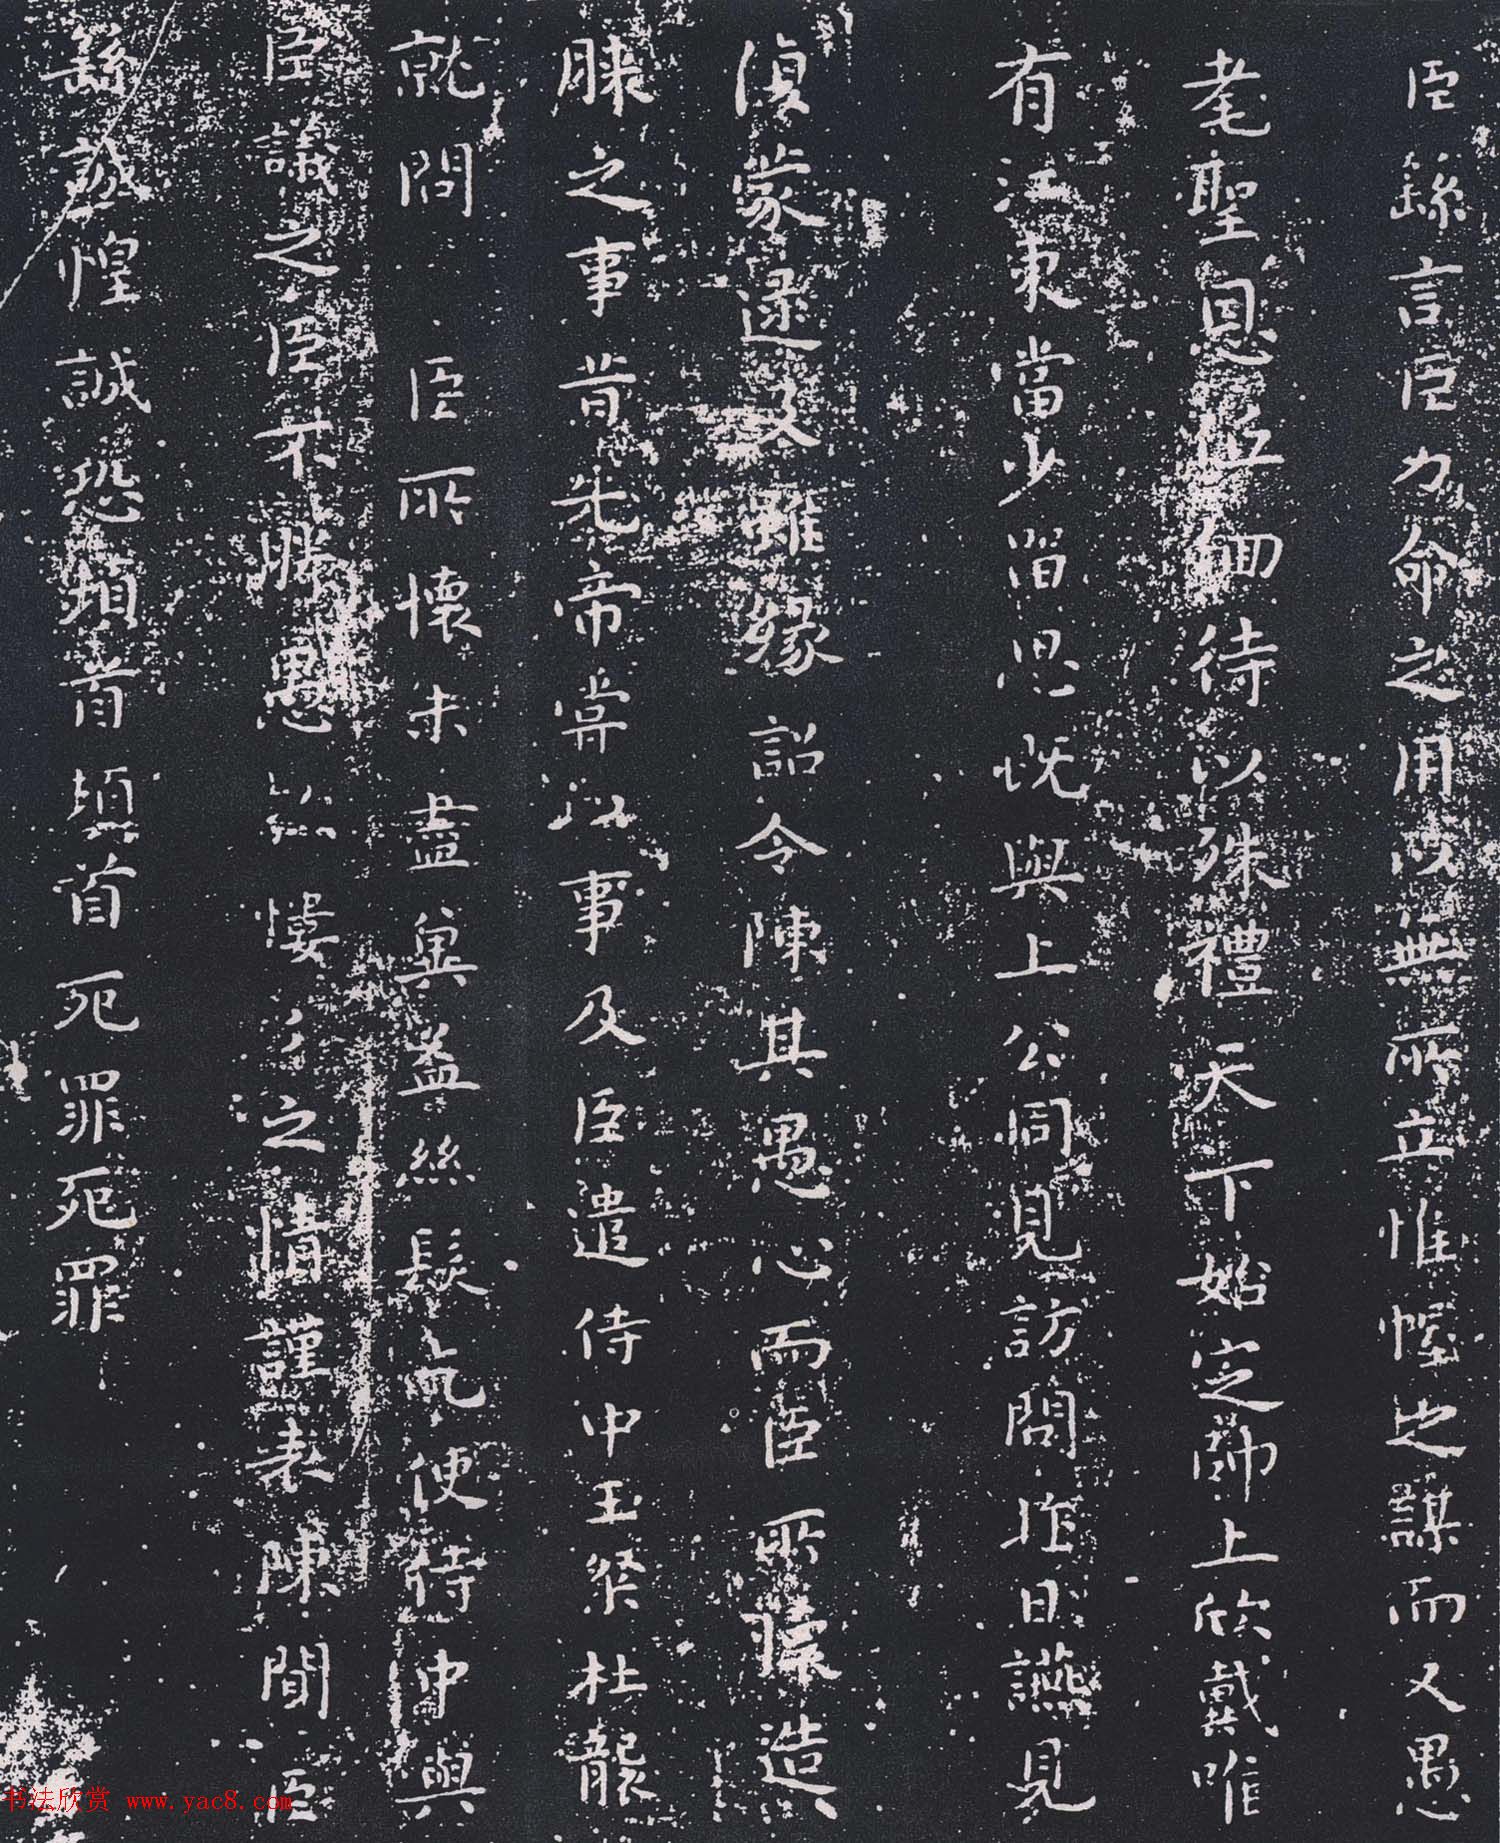 臣繇言臣力命之用以無所立惟幄之謀而又愚
耄聖恩低徊待以殊禮天下始定帥上欣戴唯
有江東當少留思既與上公同見訪問昨日讌見
復蒙逮及雖緣詔令陳其愚心而臣所懷造
膝之事昔先帝嘗以事及臣遣侍中王粲杜襲
就問臣所懷未盡冀益絲髮乞使侍中與
臣議之臣不勝愚慺慺之情謹表陳聞臣
繇誠惶誠恐頓首頓首死罪死罪
书法欣赏 www.yac8.com